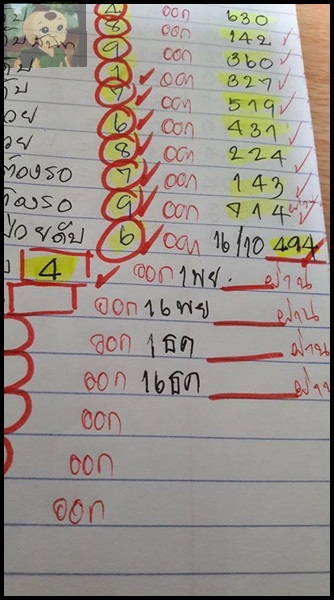 4 ออก 630
8 ออก 142
9 ออก 360
ดับ 1 ออก 327
7 ออก 519
วย 6 ออก 431
วย 8 ออก 224
ต้องรอ 7 ออก 143
ต้องรอ 9 ออก 714 ผ่าน
ป่วยดับ 6 ออก 16/10 494
4 ออก 1 พย. ผ่าน
ออก 16 พย ผ่าน
ออก 1 ธค ผ่าน
ออก 16 ธค ผ่าน
ออก
ออก
ออก